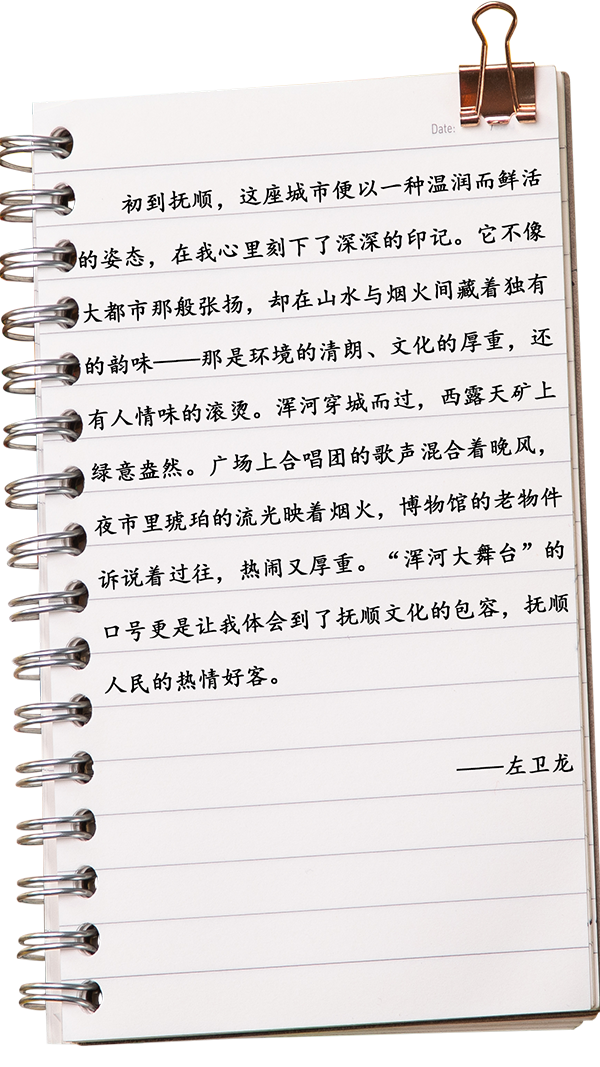 Date:
初到抚顺，这座城市便以一种温润而鲜活
的姿态，在我心里刻下了深深的印记。它不像
大都市那般张扬，却在山水与烟火间藏着独有
的韵味——那是环境的清朗、文化的厚重，还
有人情味的滚烫。浑河穿城而过，西露天矿上
绿意盎然。广场上合唱团的歌声混合着晚风，
夜市里琥珀的流光映着烟火，博物馆的老物件
诉说着过往，热闹又厚重。“浑河大舞台”的
口号更是让我体会到了抚顺文化的包容，抚顺
人民的热情好客。
——左卫龙